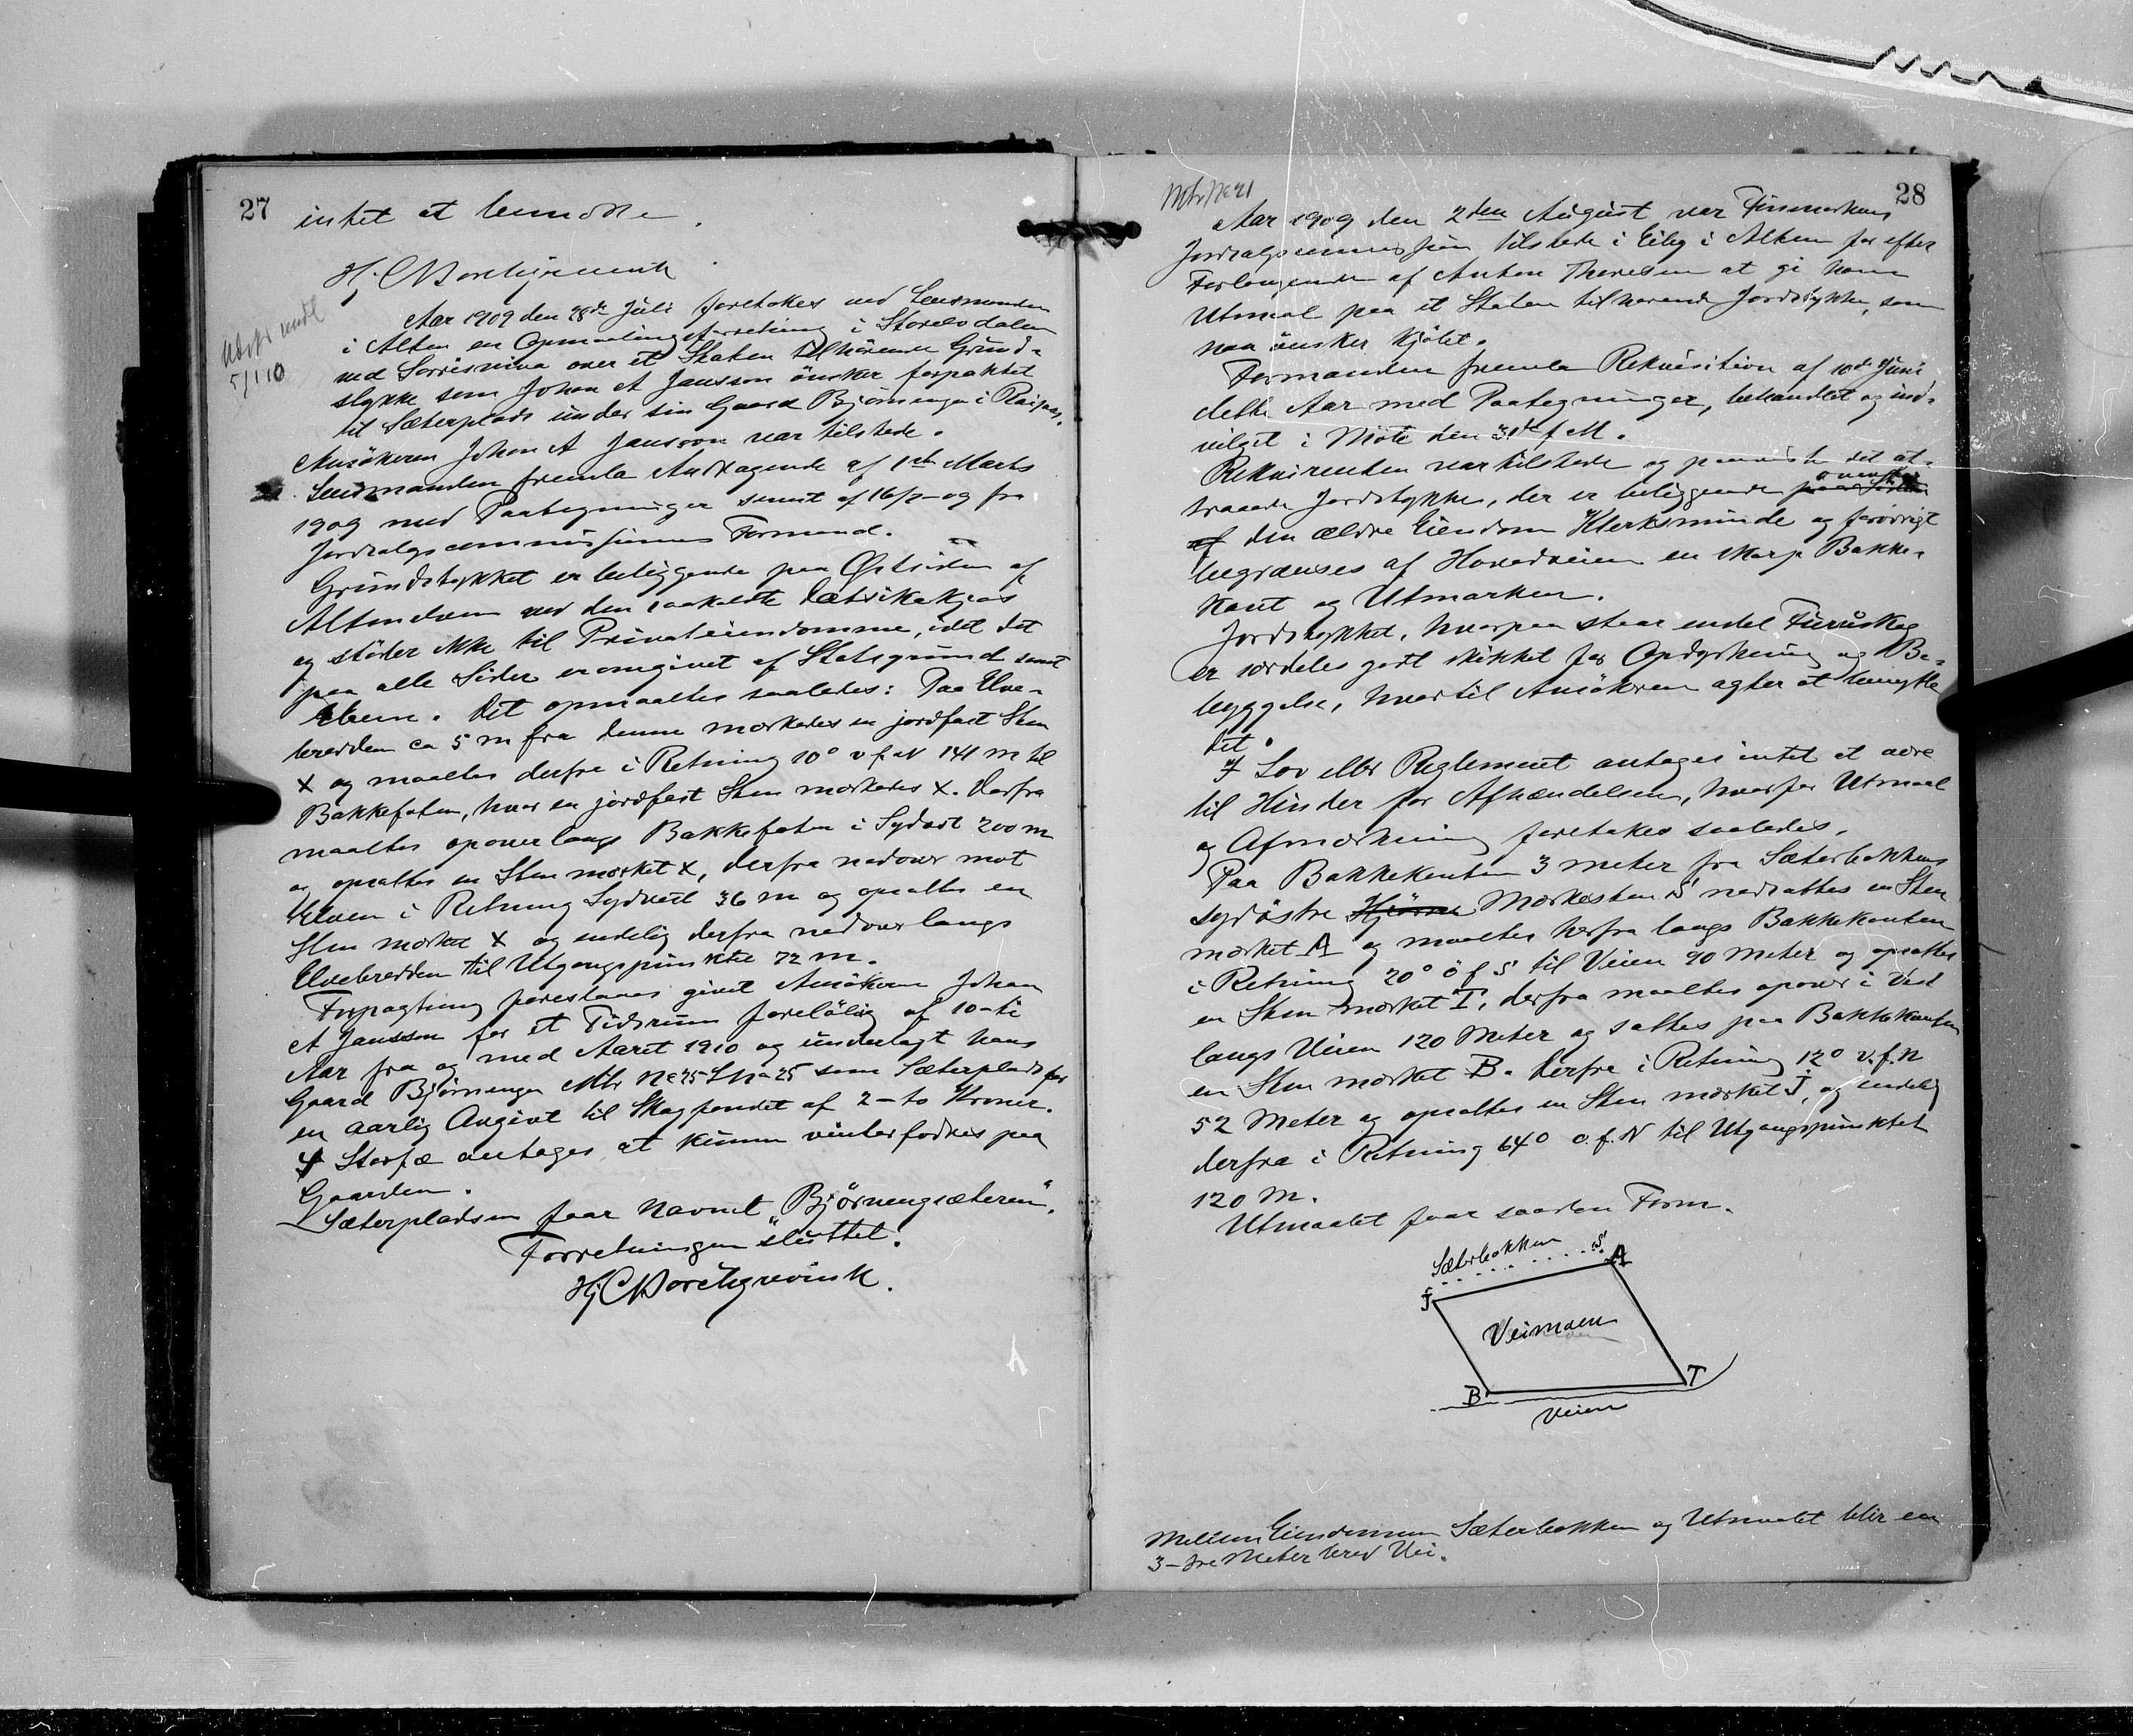 27
intet at bemærke.
Hj. C Borchgrevink
Utskr. sendt
5/1 10
Aar 1909 den 28de Juli foretokes ved Lensmanden
i Alten en Opmaalingsforretning i Storelvdalen
ved Sorrisniva over et Staten tilhörende Grund-
stykke som Johan A Jansson önsker forpaktet
til Sæterplads under sin Gaard Bjørnenga i Raipas.
Ansökeren Johan A Jansson var tilstede.
Lensmanden fremla Andragende af 1ste Marts
1909 med Paategninger samt af 16/7 og fra
Jordsalgscommissionens Formand.
Grundstykket er beliggende paa Østsiden af
Altenelven ved den saakaldte
og støder ikke til Privateiendomme, idet det
paa alle Sider er omgivet af Statsgrund samt
Elven. Det opmaaltes saaledes: Paa Elve-
bredden ca 5 m fra denne mærkedes en jordfast Sten
X og maaltes derfra i Retning 10° v f N 141 m til
Bakkefoten, hvor en jordfast Sten mærkedes X. Derfra
maaltes opover langs Bakkefoten i Sydost 200 m
og opsattes en Sten mærket X, derfra nedover mot
Elven i Retning Sydvest 36 m og opsattes en
Sten mærket X og endelig derfra nedover langs
Elvebredden til Utgangspunktet 72 m.
Forpagtning foreslaaes givet Ansökeren Johan
A Jansson for et Tidsrum foreløbig af 10-ti
Aar fra og med Aaret 1910 og underlagt hans
Gaard Bjørnenga Mtr No 25 LNo 25 som Sæterplads for
en aarlig Avgivt til Skogfondet af 2-to Kroner.
4 Storfæ antages at kunne vinterfødes paa
Gaarden.
Sæterpladsen faar Navnet "Bjørnengsæteren".
Forretningen sluttet.
Hj C Borchgrevink.
28
Aar 1909 den 2den August var Finmarkens
Jordsalgscommission tilstede i Eiby i Alten for efter
Forlangende af Anton Thoresen at gi ham
Utmaal paa et Staten tilhørende Jordstykke, som
han önsker kjöbt.
Formanden fremla Rekvisition af 10de Juni
dette Aar med Paategninger, behandlet og ind-
vilget i Möte den 31te f M.
Rekvirenten var tilstede og paaviste det at-
traaede Jordstykke, der er beliggende ovenfor paa Siden
af den ældre Eiendom Klerksminde og forövrigt
begrænses af Hovedveien en skarp Bakke-
kant og Utmarken.
Jordstykket, hvorpaa staar endel Furuskog
er særdeles godt skikket for Opdyrkning og Be-
byggelse, hvortil Ansökeren agter at benytte
det.
I Lov eller Reglement antages intet at være
til Hinder for Afhændelsen, hvorfor Utmaal
og Afmærkning foretokes saaledes.
Paa Bakkekanten 3 meter fra Sæterbakkens
sydöstre Hjörne Merkesten S nedsattes en Sten
mærket A og maaltes herfra langs Bakkekanten
i Retning 20° ö f S til Veien 90 Meter og opsattes
en Sten mærket T, derfra maaltes opover i Vest
langs Veien 120 Meter og sattes paa Bakkekanten
en Sten mærket B. Derfra i Retning 12° v.f.N
52 Meter og opsattes en Sten mærket J, og endelig
derfra i Retning 64° o.f.N til Utgangspunktet
120 M.
Utmaalet faar saadan Form.
Sæterbakken S A
J
Veimoen
B T
Veien
Mellem Eiendommen Sæterbakken og Utmaalet blir en
3-tre Meter bred Vei.